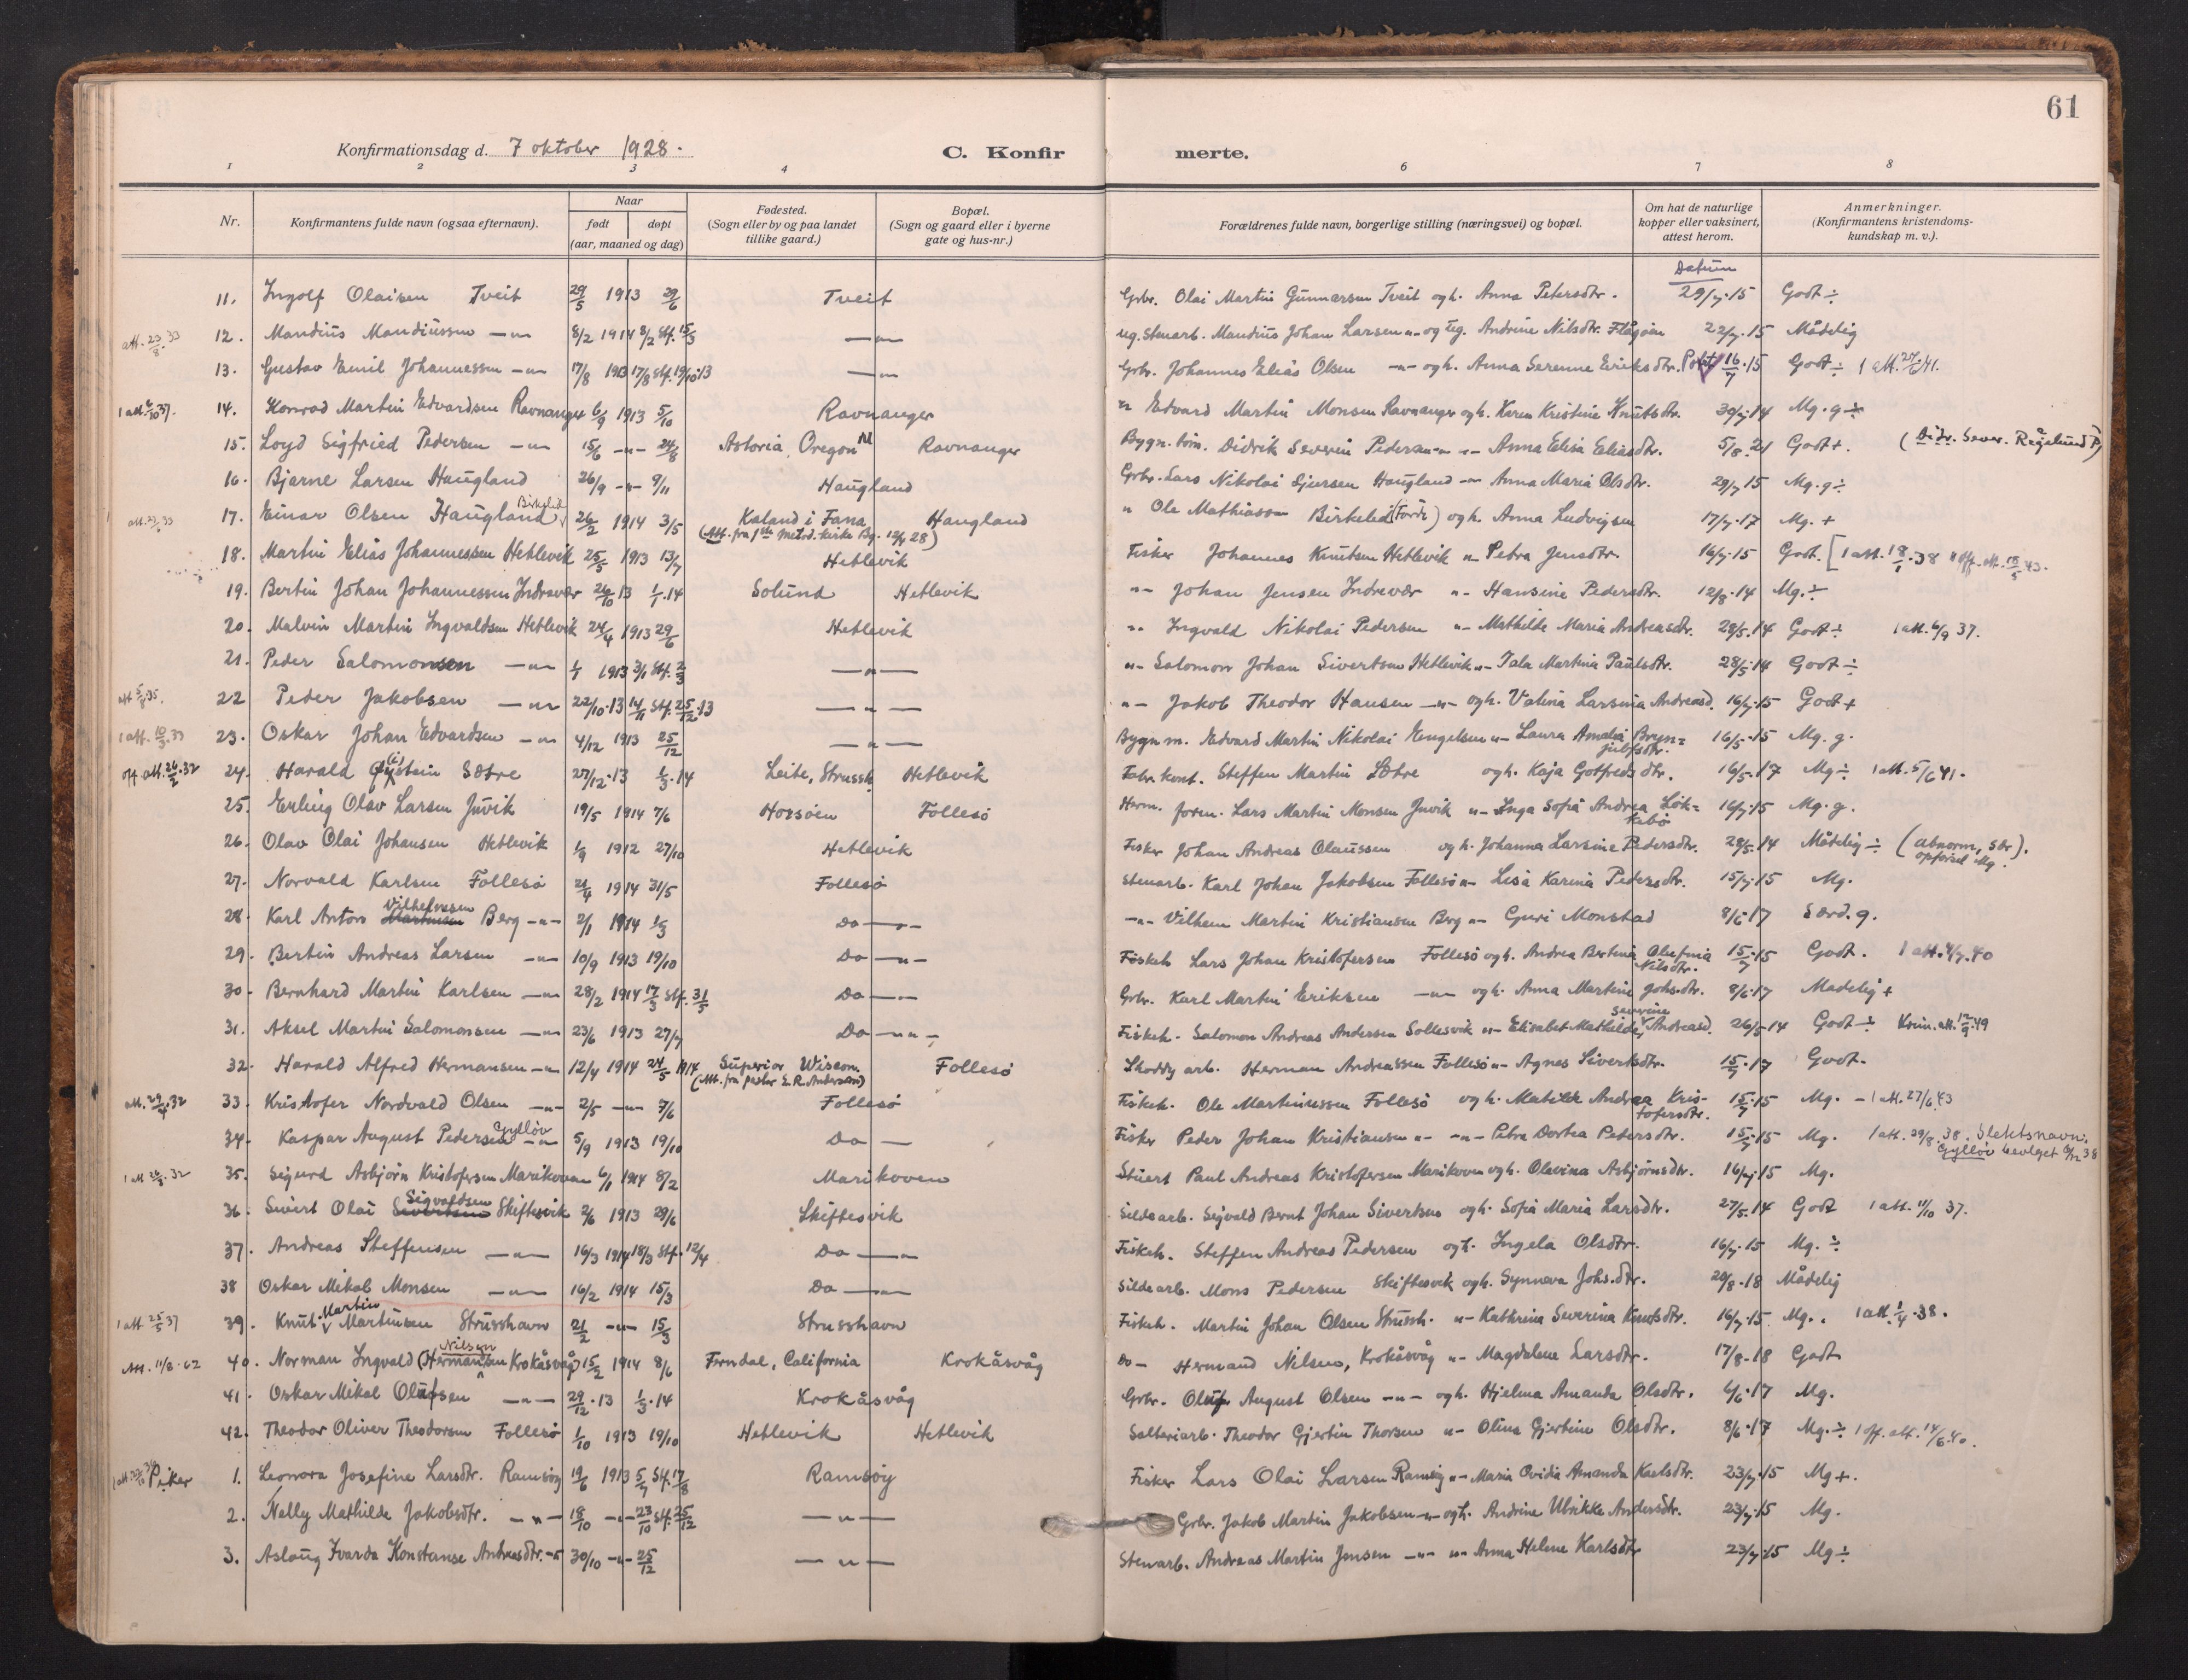 61
Konfirmationsdag d. 7 oktober 1928.
C. Konfirmerte.
1 2 3 4 6 7 8
Nr. Konfirmantens fulde navn (ogsaa efternavn). Naar født døpt (aar, maaned og dag) Fødested. (Sogn eller by og paa landet tillike gaard.) Bopæl. (Sogn og gaard eller i byerne gate og hus-nr.) Forældrenes fulde navn, borgerlige stilling (næringsvei) og bopæl. Om hat de naturlige kopper eller vaksinert, attest herom. Anmerkninger. (Konfirmantens kristendomskundskap m. v.).
Datum
11. Ingolf Olaisen Tveit 29/5 1913 29/6 Tveit Grbr. Olai Martin Gunnarsen Tveit og h. Anna Petersdtr. 29/7.15 Godt ÷
att. 23/8.33 12. Mandius Mandiussen —„— 8/2 1914 8/2 stf. 15/3 —„— ug. Stenarb. Mandius Johan Larsen „— og ug. Andrine Nilsdtr. Flågøen 22/7.15 Mådelig
13. Gustav Emil Johannessen —„— 17/8 1913 17/8 stf. 19/10.13 —„— Grbr. Johannes Elias Olsen —„— og h. Anna Serenne Eriksdtr. 16/7.15 Godt ÷ 1 att. 24/6 41.
1 att. 6/10 37. 14. Konrad Martin Edvardsen Ravnanger 6/9 1913 5/10 Ravnanger „ Edvard Martin Monsen Ravnanger og h. Karen Kristine Knutsdtr. 30/7.14 Mg. g ÷
15. Loyd Sigfried Pedersen —„— 15/6 —„— 24/8 Astoria, Oregon Ravnanger Bygn. tøm. Didrik Severin Pedersen —„— „— Anna Elisa Eliasdtr. 5/8.21 Godt +. (Didr. Sever. Rågelund P.)
16. Bjarne Larsen Haugland 26/9 —„— 9/11 Haugland Grbr. Lars Nikolai Djursen Haugland —„— Anna Maria Olsdtr. 29/7 15 Mg. g ÷
17. Einar Olsen Haugland Birkeled 26/2 1914 3/5 Kaland i Fana Haugland „ Ole Mathiassen Birkeled (Førde) og h. Anna Ludvigsen 17/7.17 Mg. +
(Att. fra 1ste Metod. kirke Bg. 12/4 28)
18. Martin Elias Johannessen Hetlevik 25/5 1913 13/7 Hetlevik Fisker Johannes Knutsen Hetlevik „— Petra Jensdtr. 16/7.15 Godt. [1 att. 18/1.38 1 off. att. 15/5 43.
19. Bertin Johan Johannessen Indrevær 26/10 13 1/1.14 Solund Hetlevik „— Johan Jensen Indrevær „— Hansine Pedersdtr. 12/8.14 Mg. ÷
20. Malvin Martin Ingvaldsen Hetlevik 24/4 1913 29/6 Hetlevik „— Ingvald Nikolai Pedersen „— Mathilde Maria Andreasdtr. 28/5.14 Godt ÷ 1 att. 6/9 37.
21. Peder Salomonsen —„— 1/1 1913 3/1 stf. 2/3 —„— „— Salomon Johan Sivertsen Hetlevik „— Tala Martina Paulsdtr. 28/5.14 Godt ÷
att 5/8 35. 22 Peder Jakobsen —„— 22/10.13 14/11 stf. 25/12.13 —„— „— Jakob Theodor Hansen —„— og h. Valina Larsina Andreasd. 16/7.15 Godt +
1 att. 10/3.33 23. Oskar Johan Edvardsen —„— 4/12 1913 25/12 —„— Bygn m. Edvard Martin Nikolai Engelsen „— Laura Amalia Brynjulfsdtr. 16/5.15 Mg. g.
off. att. 26/2.32 24. Harald Øystein Sætre 27/12.13 1/3.14 Leite, Strussh. Hetlevik Fabr. kont. Steffen Martin Sætre og h. Kaja Gotfredsdtr. 16/5.17 Mg ÷ 1 att. 5/6 41.
25. Erling Olav Larsen Juvik 19/5 1914 7/6 Horsøen Follesö Herm. form. Lars Martin Monsen Juvik „— Inga Sofia Andrea Løkkebø 16/7.15 Mg. g.
26. Olav Olai Johansen Hetlevik 1/9 1912 27/10 Hetlevik Fisker Johan Andreas Olaussen og h. Johanna Larsine Pedersdtr. 28/5.14 Mådelig ÷ (abnorm, opførsel Mg.)
27. Norvald Karlsen Follesö 21/4 1914 31/5 Follesö Stenarb. Karl Johan Jakobsen Follesö „— Lisa Karina Pedersdtr. 15/7.15 Mg.
28. Karl Anton Vilhelmsen Berg —„— 2/1 1914 1/3 Do —„— —„— Vilhem Martin Kristiansen Berg „— Guri Monstad 8/6.17 Særd. g.
29. Bertin Andreas Larsen —„— 10/9 1913 19/10 Do —„— Fiskeh Lars Johan Kristofersen Follesö og h. Andrea Bertina Olufina Nilsdtr. 15/7.15 Godt. 1 att. 4/7.40
30. Bernhard Martin Karlsen —„— 28/2 1914 17/3 stf. 31/5 Do —„— Grbr. Karl Martin Eriksen —„— og h. Anna Martine Johsdtr. 8/6.17 Madelig +
31. Aksel Martin Salomonsen —„— 23/6 1913 27/7 Do —„— Fiskeh. Salomon Andreas Andersen Sollesvik „— Elisabet Mathilde Severine Andreasd. 26/5 14 Godt ÷ Krim. att. 12/9.49
32. Harald Alfred Hermansen —„— 12/4 1914 24/5 1914 Superior Wiscon. Follesö Shoddy arb. Herman Andreassen Follesö „— Agnes Sivertsdtr. 15/7.17 Godt.
(Att. fra pastor E. R. Andersen)
att. 29/4.32 33. Kristofer Nordvald Olsen —„— 2/5 —„— 7/6 Follesö Fiskeh. Ole Martinussen Follesö og h. Matilde Andrea Kristofersdtr. 15/7.15 Mg. — 1 att. 27/6 43
34. Kaspar August Pedersen Gylløv —„— 5/9 1913 19/10 Do — Fisker Peder Johan Kristiansen „— „— Petra Dortea Petersdtr. 15/7.15 Mg. 1 att. 29/8.38. Slektsnavn: Gylløv bevilget 6/12 38
1 att 26/3.32 35. Sigurd Asbjörn Kristofersen Marikoven 6/1 1914 8/2 Marikoven Stuert Paul Andreas Kristofersen Marikoven og h. Olevina Asbjörnsdtr. 16/7.15 Mg.
36. Sivert Olai Sigvaldsen Skiftesvik 2/6 1913 29/6 Skiftesvik Sildearb. Sigvald Bernt Johan Sivertsen og h. Sofia Maria Larsdtr. 27/5.14 Godt 1 att. 11/10 37.
37. Andreas Steffensen —„— 16/3 1914 18/3 stf. 12/4 Do —„— Fiskeh. Steffen Andreas Pedersen og h. Ingela Olsdtr. 16/7.15 Mg. ÷
38 Oskar Mikal Monsen —„— 16/2 1914 15/3 Do —„— Sildearb. Mons Pedersen Skiftesvik og h. Synneva Johs.dtr. 20/8.18 Mådelig
1 att 25/5 37 39. Knut Martin Martinsen Strusshavn 21/2 —„— 15/3 Strusshavn Fiskeh. Martin Johan Olsen Strussh. „— Kathrina Severina Knutsdtr. 16/7.15 Mg. 1 att. 1/4.38.
Att. 11/8.62 40. Norman Ingvald (Hermansen Krokåsvåg) Nilsen 15/2 1914 8/6 Ferndal, California Krokåsvåg Do — Hermand Nilsen, Krokåsvåg „— Magdalene Larsdtr. 17/8.18 Godt
41. Oskar Mikal Olufsen —„— 29/12.13 1/3.14 Krokåsvåg Grbr. Oluf August Olsen —„— og h. Hjelma Amanda Olsdtr. 6/6.17 Mg.
42. Theodor Oliver Theodorsen Follesö 1/10 1913 19/10 Hetlevik Hetlevik Salteriarb. Theodor Gjertin Thorsen „— Olina Gjertine Olsdtr. 8/6.17 Mg. ÷ 1 off. att. 14/6.40.
Piker 1. Leonora Josefine Larsdtr. Ramsöy 19/6 1913 5/7 Stf. 17/8 Ramsöy Fisker Lars Olai Larsen Ramsöy „— Maria Ovidia Amanda Karlsdtr. 23/7.15 Mg +.
2. Nelly Mathilde Jakobsdtr. —„— 18/10 —„— 23/10 stf. 25/12 —„— Grbr. Jakob Martin Jakobsen —„— og h. Andrine Ulrikke Andersdtr. 23/7.15 Mg.
3. Aslaug Ivarda Konstanse Andreasdtr. —„— 30/10 —„— 25/12 —„— Stenarb. Andreas Martin Jensen —„— „— Anna Helene Karlsdtr 23/7.15 Mg ÷